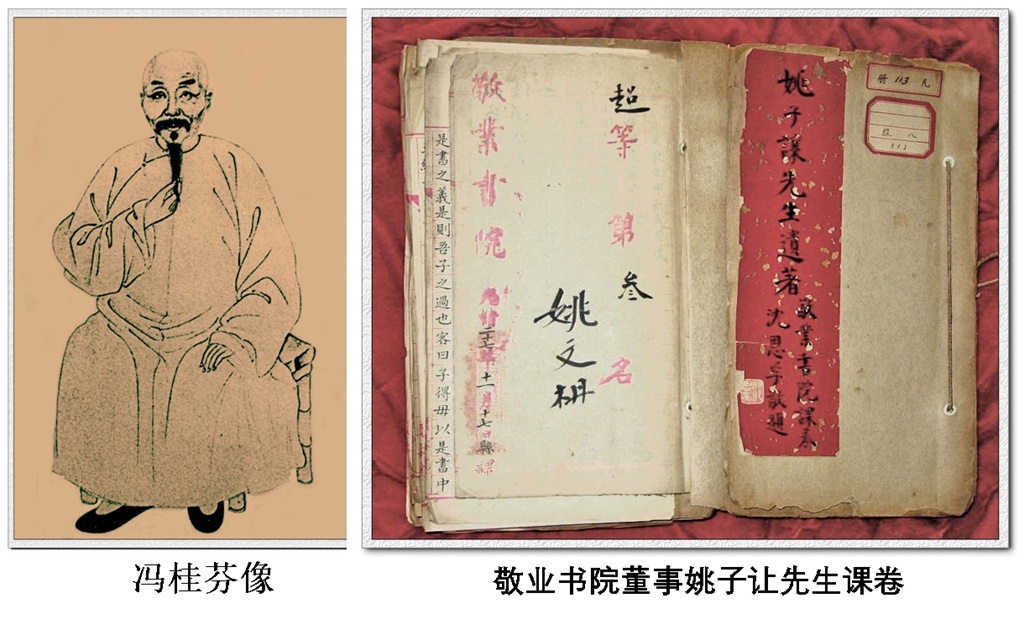 姚子讓先生遺著
敬業書院課卷
沈恩孚敬題
113
超等第叁名
姚文枬
敬業書院
光緒二十七年十一月十七日縣課
是書之義是則吾子之過也客曰子得毋以是書中
冯桂芬像
敬业书院董事姚子让先生课卷